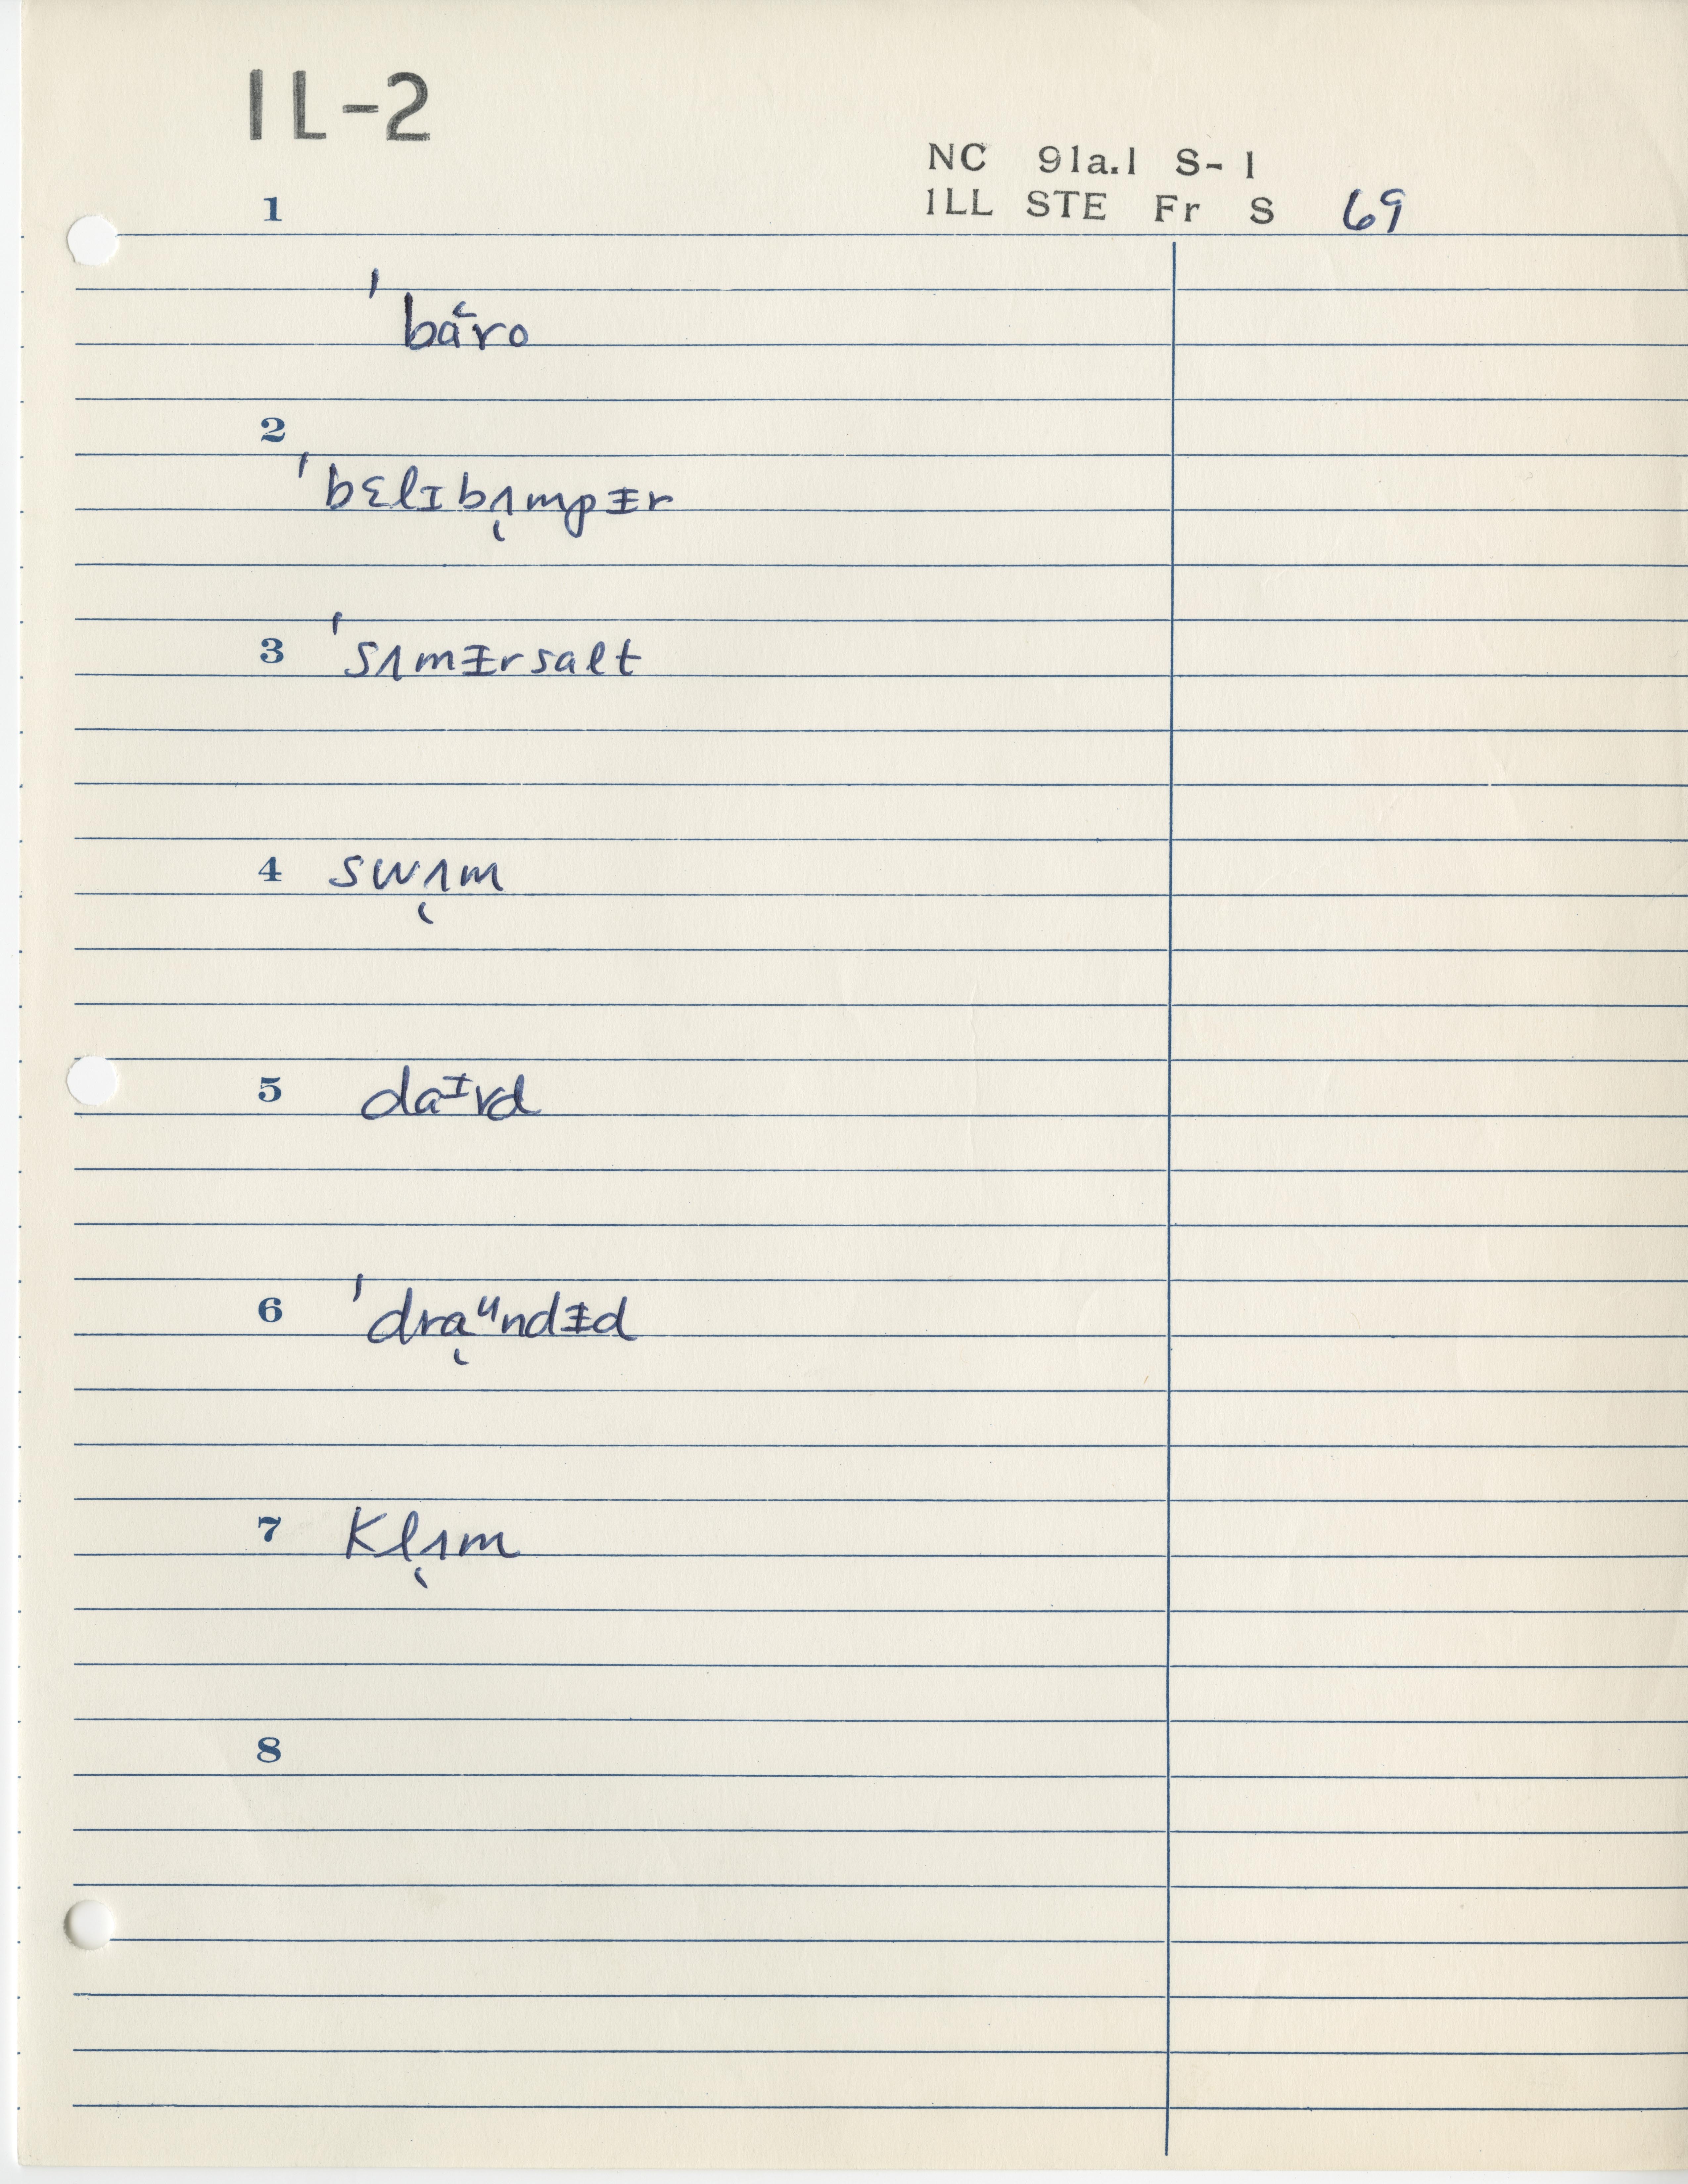 IL-2
NC 91a.1 S-1
ILL STE Fr S 69
1
ˈba˂ro
2
ˈbɛlɪbʌ̜mpᵻr
3 ˈsʌmᵻrsalt
4 swʌ̜m
5 daᶦvd
6 ˈdra̜ᶸndᵻd
7 klʌ̜m
8